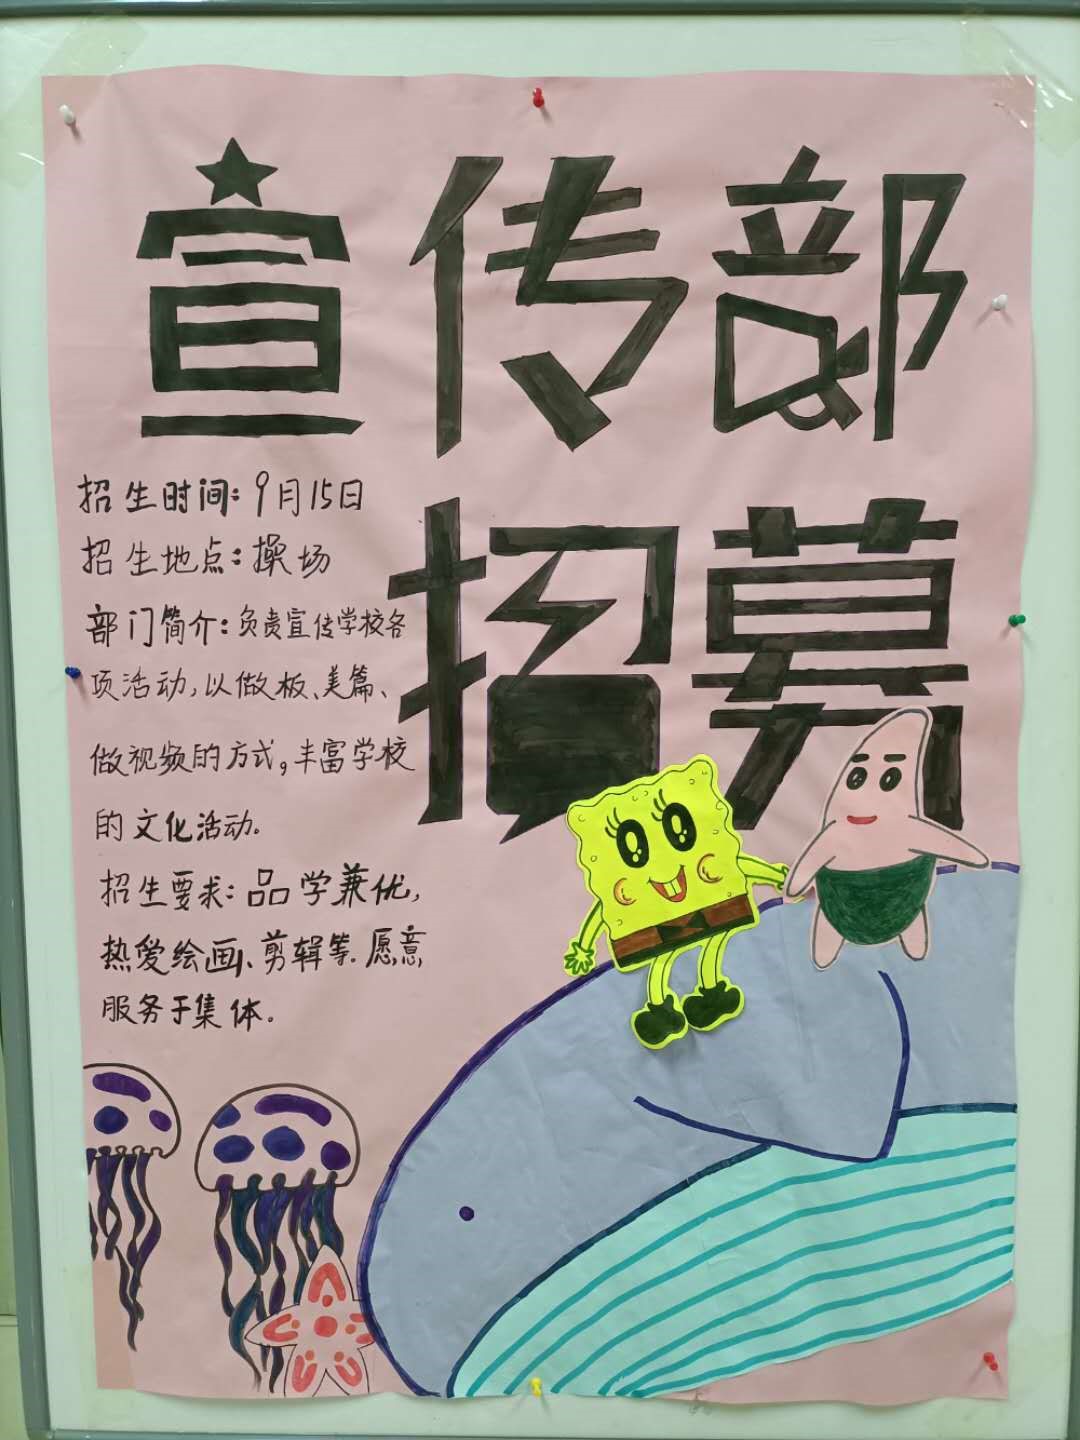 宣传部
招募
招生时间：9月15日
招生地点：操场
部门简介：负责宣传学校各
项活动，以做板、美篇、
做视频的方式，丰富学校
的文化活动。
招生要求：品学兼优，
热爱绘画、剪辑等.愿意
服务于集体.